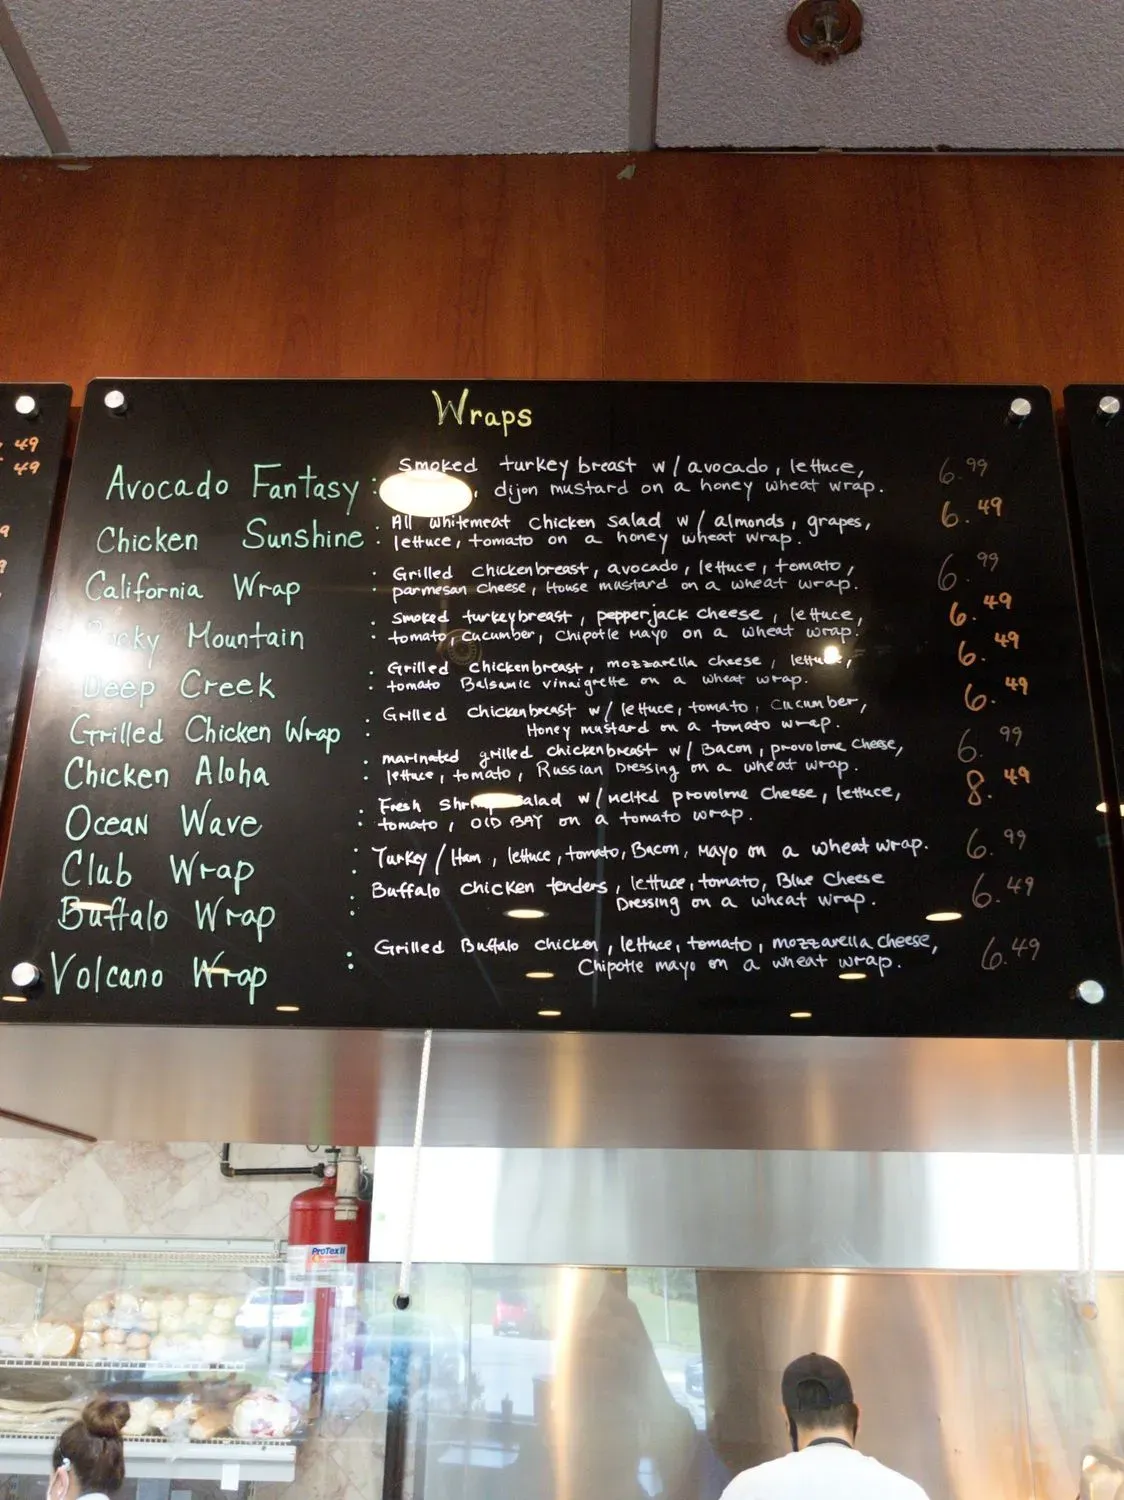 Wraps
Avocado Fantasy : Smoked turkey breast w/ avocado, lettuce, 6.99
, dijon mustard on a honey wheat wrap.
Chicken Sunshine : All whitemeat chicken salad w/ almonds, grapes, 6.49
lettuce, tomato on a honey wheat wrap.
California Wrap : Grilled chickenbreast, avocado, lettuce, tomato, 6.99
parmesan cheese, House mustard on a wheat wrap.
Mountain : Smoked turkeybreast, pepperjack cheese, lettuce, 6.49
tomato, cucumber, Chipotle Mayo on a wheat wrap.
Deep Creek : Grilled chickenbreast, mozzarella cheese, lettuce, 6.49
tomato Balsamic vinaigrette on a wheat wrap.
Grilled Chicken Wrap : Grilled chickenbreast w/ lettuce, tomato, cucumber, 6.49
Honey mustard on a tomato wrap.
Chicken Aloha : marinated grilled chickenbreast w/ Bacon, provolone cheese, 6.99
lettuce, tomato, Russian Dressing on a wheat wrap.
Ocean Wave : Fresh salad w/ melted provolone cheese, lettuce, 8.49
tomato, OLD BAY on a tomato wrap.
Club Wrap : Turkey / Ham, lettuce, tomato, Bacon, Mayo on a wheat wrap. 6.99
Buffalo Wrap : Buffalo chicken tenders, lettuce, tomato, Blue Cheese 6.49
Dressing on a wheat wrap.
Volcano Wrap : Grilled Buffalo chicken, lettuce, tomato, mozzarella cheese, 6.49
Chipotle mayo on a wheat wrap.
49
49
ProTex II